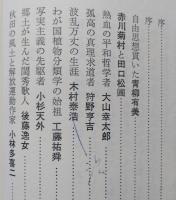 序
序
自由思想貫いた青柳有美
赤川菊村と田口松圃
熱血の平和哲学者 大山幸太郎
孤高の真理求道者 狩野亨吉
波乱万丈の生涯 木村泰治
わが国植物分類学の始祖 工藤祐舜
写実主義の先駆者 小杉天外
郷土が生んだ閨秀歌人 後藤逸女
秋田の風土と解放運動作家 小林多喜二